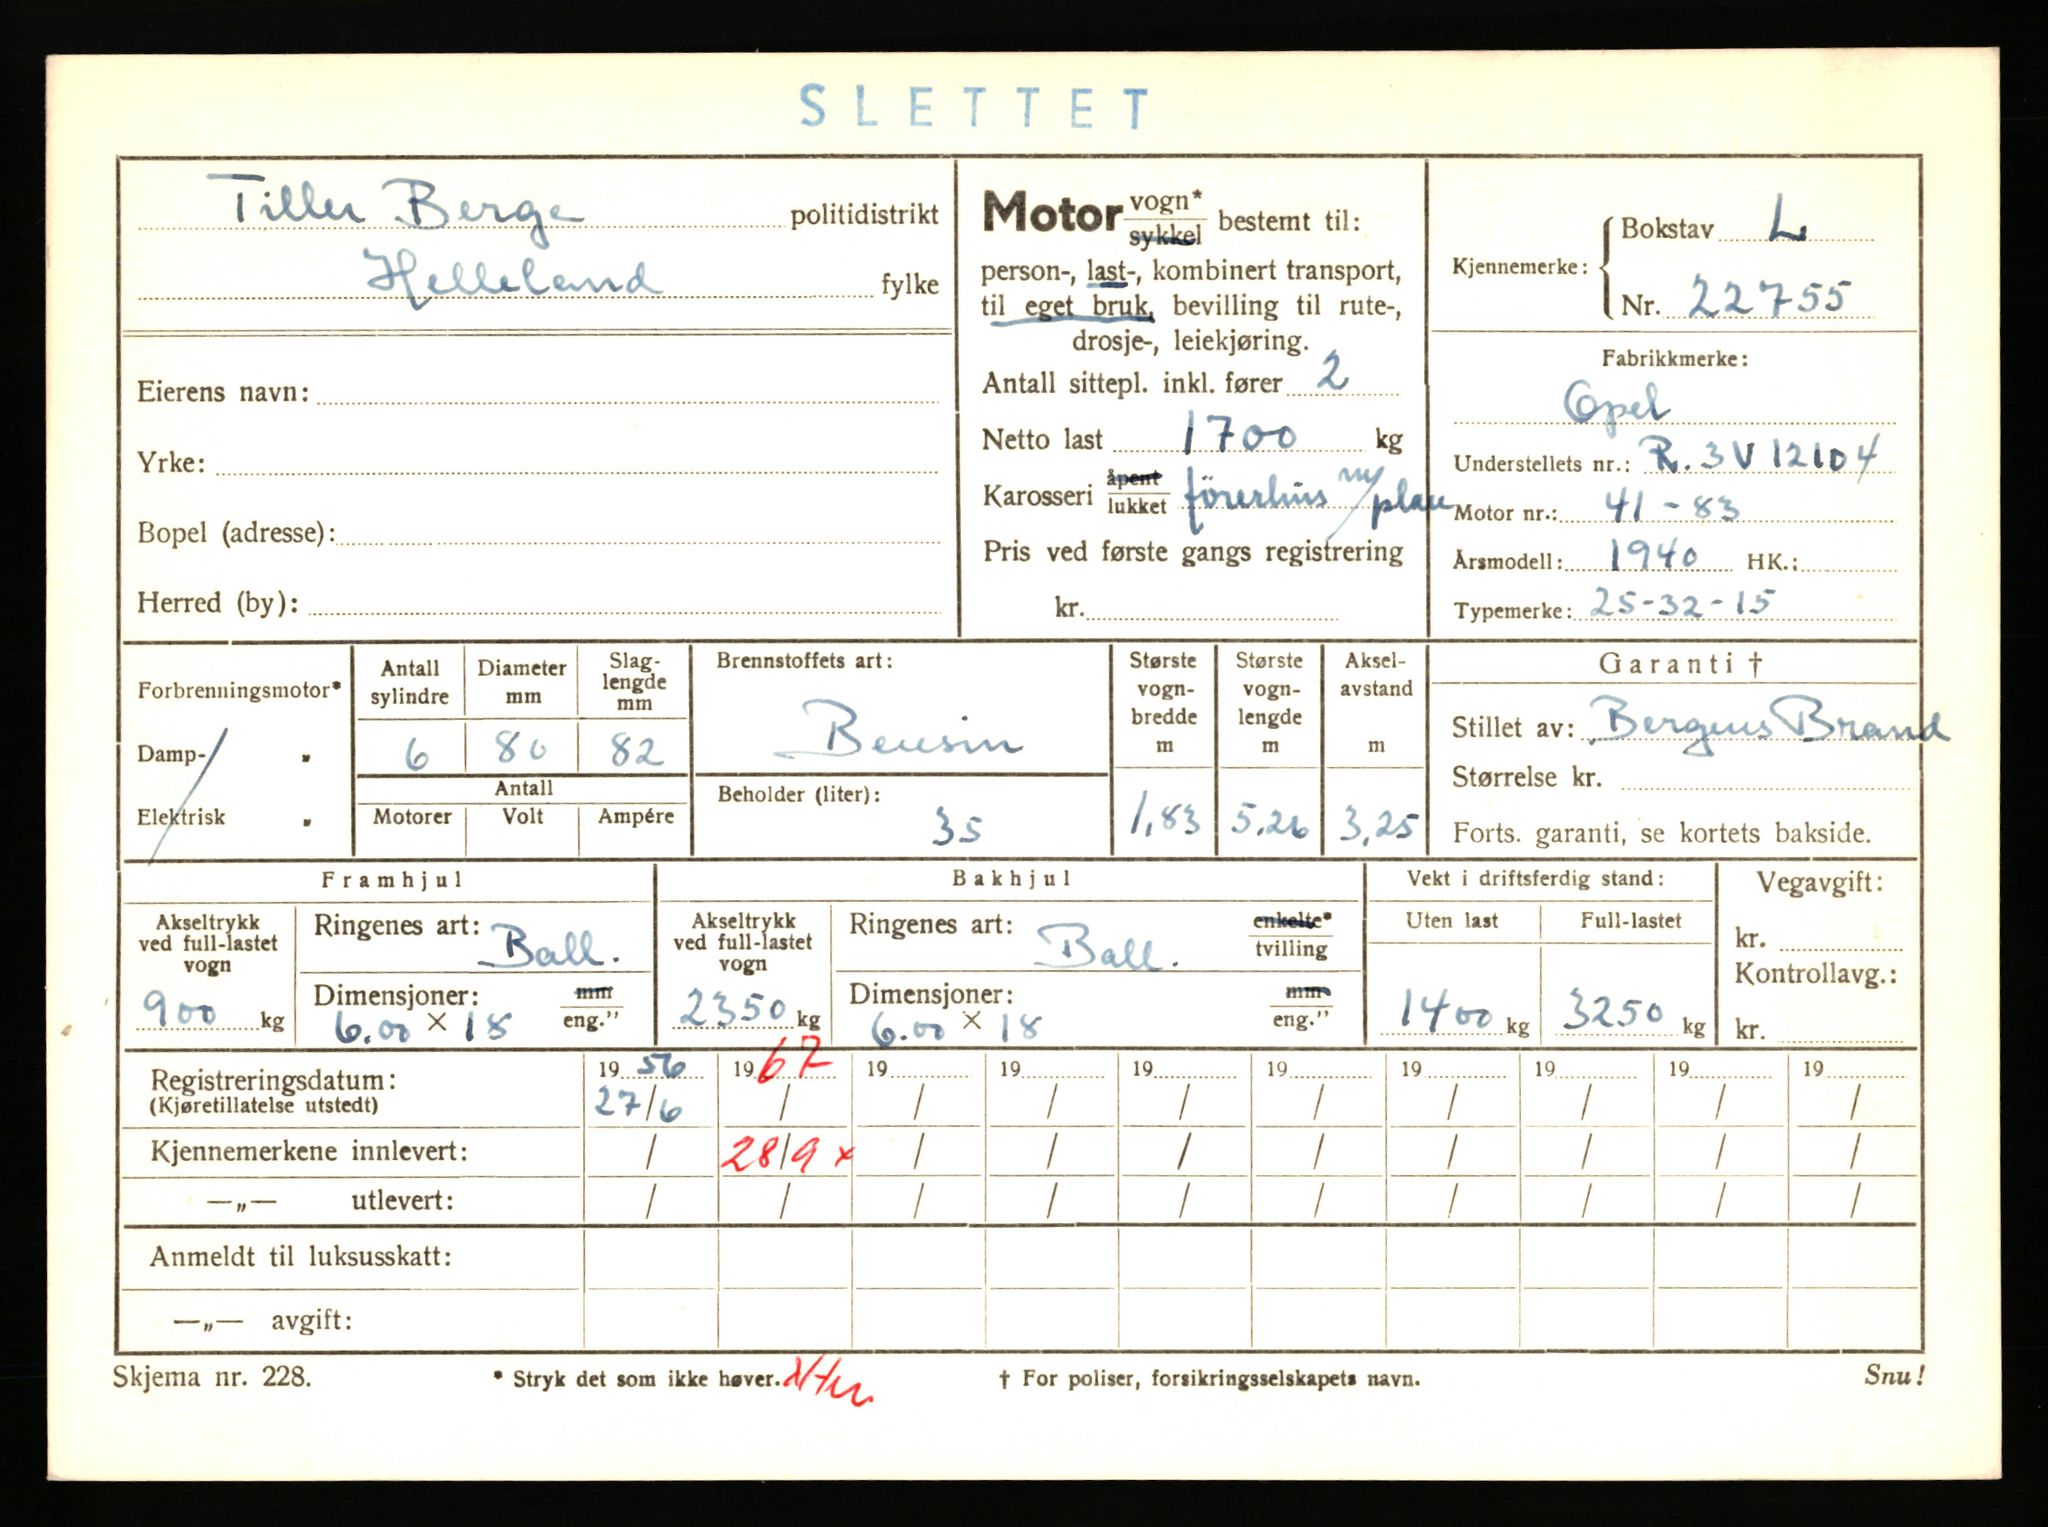 SLETTET
Tiller Berge politidistrikt
Helleland fylke
Eierens navn:
Yrke:
Bopel (adresse):
Herred (by):
Motor vogn* sykkel bestemt til:
person-, last-, kombinert transport,
til eget bruk, bevilling til rute-,
drosje-, leiekjøring.
Antall sittepl. inkl. fører 2
Netto last 1700 kg
Karosseri åpent lukket förerhus ny plan
Pris ved første gangs registrering
kr.
Kjennemerke: Bokstav L
Nr. 22755
Fabrikkmerke:
Opel
Understellets nr.: R. 3 V 12104
Motor nr.: 41-83
Årsmodell: 1940 HK.:
Typemerke: 25-32-15
Forbrenningsmotor*
Damp- „
Elektrisk „
Antall sylindre
Diameter mm
Slag-lengde mm
6 80 82
Antall
Motorer Volt Ampére
Brennstoffets art:
Bensin
Beholder (liter):
35
Største vogn-bredde m
1,83
Største vogn-lengde m
5,26
Aksel-avstand m
3,25
Garanti †
Stillet av: Bergens Brand
Størrelse kr.
Forts. garanti, se kortets bakside.
Framhjul
Akseltrykk ved full-lastet vogn
900 kg
Ringenes art: Ball.
Dimensjoner: mm eng."
6.00 × 18
Bakhjul
Akseltrykk ved full-lastet vogn
2350 kg
Ringenes art: Ball. enkelte* tvilling
Dimensjoner: mm eng."
6.00 × 18
Vekt i driftsferdig stand:
Uten last Full-lastet
1400 kg 3250 kg
Vegavgift:
kr.
Kontrollavg.:
kr.
Registreringsdatum: 19 56 19 67 19 19 19 19 19 19 19 19
(Kjøretillatelse utstedt) 27/6 / / / / / / / / /
Kjennemerkene innlevert: / 28/9 x / / / / / / / /
—„— utlevert: / / / / / / / / / /
Anmeldt til luksusskatt:
—„— avgift:
Skjema nr. 228. * Stryk det som ikke høver. † For poliser, forsikringsselskapets navn. Snu!